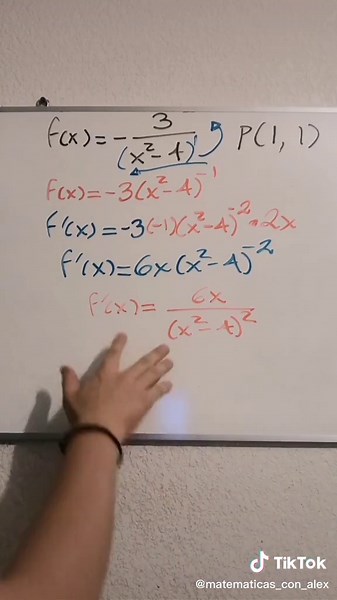 f(x) = - 3/(x² - 4)¹ P(1, 1)
f(x) = -3(x² - 4)⁻¹
f'(x) = -3(-1)(x² - 4)⁻² • 2x
f'(x) = 6x(x² - 4)⁻²
f'(x) = 6x/(x² - 4)²
TikTok
@matematicas_con_alex